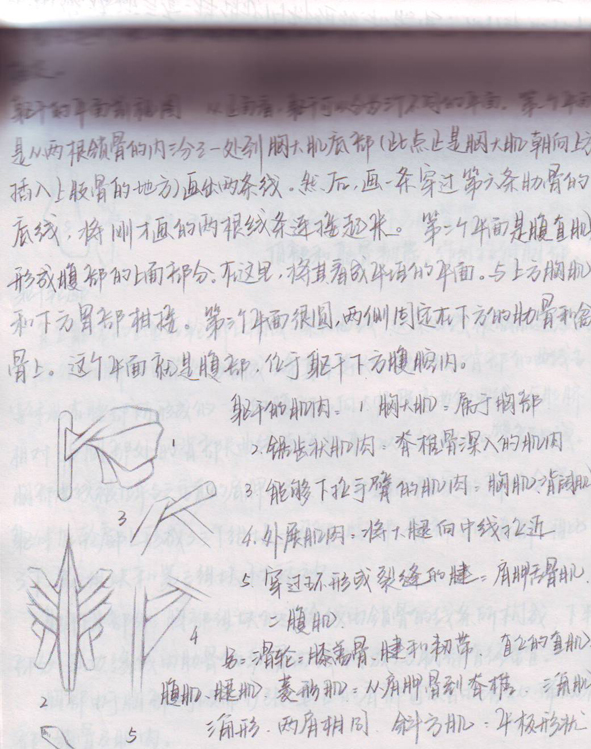 躯干的平面前视图 从正面看,躯干可以分为三个不同的平面。第一个平面
是从两根锁骨的内三分之一处到胸大肌底部(此点正是胸大肌朝向上方
插入上肢骨的地方)画出两条线。然后,画一条穿过第六条肋骨的
底线,将刚才画的两根线条连接起来。第二个平面是腹直肌
形成腹部的上面部分。在这里,将其看成平坦的平面。与上方胸肌
和下方胃部相接。第三个平面很圆,两侧固定在下方的肋骨和
骨上。这个平面就是腹部,位于躯干下方腹腔内。
躯干的肌肉: 1 胸大肌:属于胸部
2.锯齿状肌肉:脊椎骨深入的肌肉
3.能够下拉手臂的肌肉:胸肌、背阔肌
4.外展肌肉:将大腿向中线拉近
5.穿过环形或裂缝的腱:肩胛舌骨肌、
二腹肌
6:滑轮:膝盖骨、腱和韧带 直立的直肌:
腹肌、腿肌、菱形肌:从肩胛骨到脊椎 三角肌:
三角形.两肩相同 斜方肌:平板形状
1
3
4
2
5